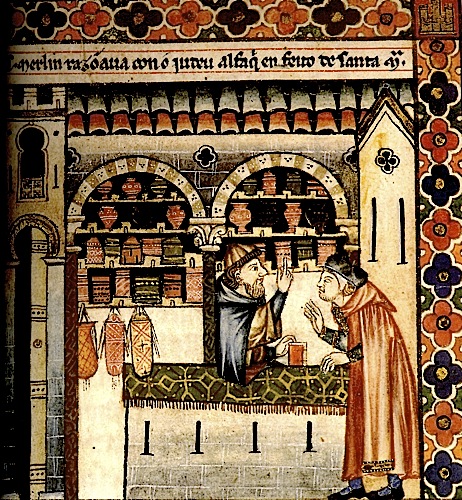 Merlin razõaua con o iudeu alfaq̃ en feito de santa M̃.